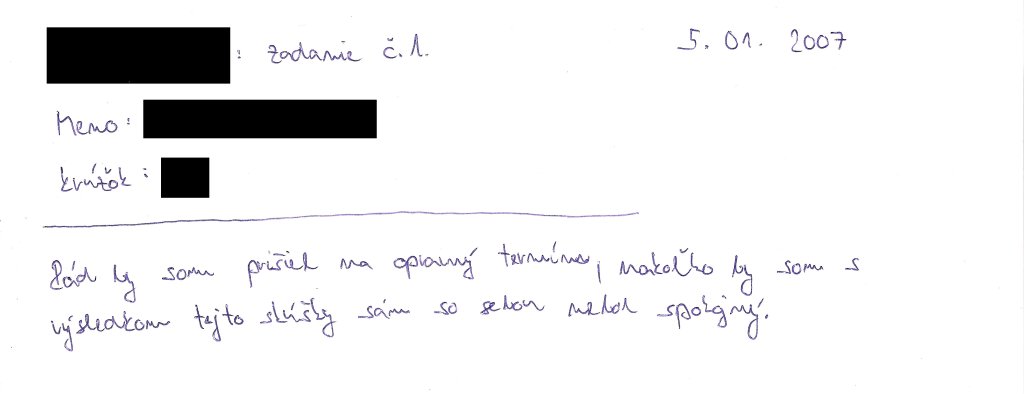 : zadanie č.1. 5. 01. 2007
Meno:
Krúžok:
Rád by som prišiel na opravný termín, nakoľko by som s
výsledkom tejto skúšky sám so sebou nebol spokojný.